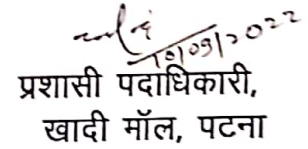 19/09/2022
प्रशासी पदाधिकारी,
खादी मॉल, पटना